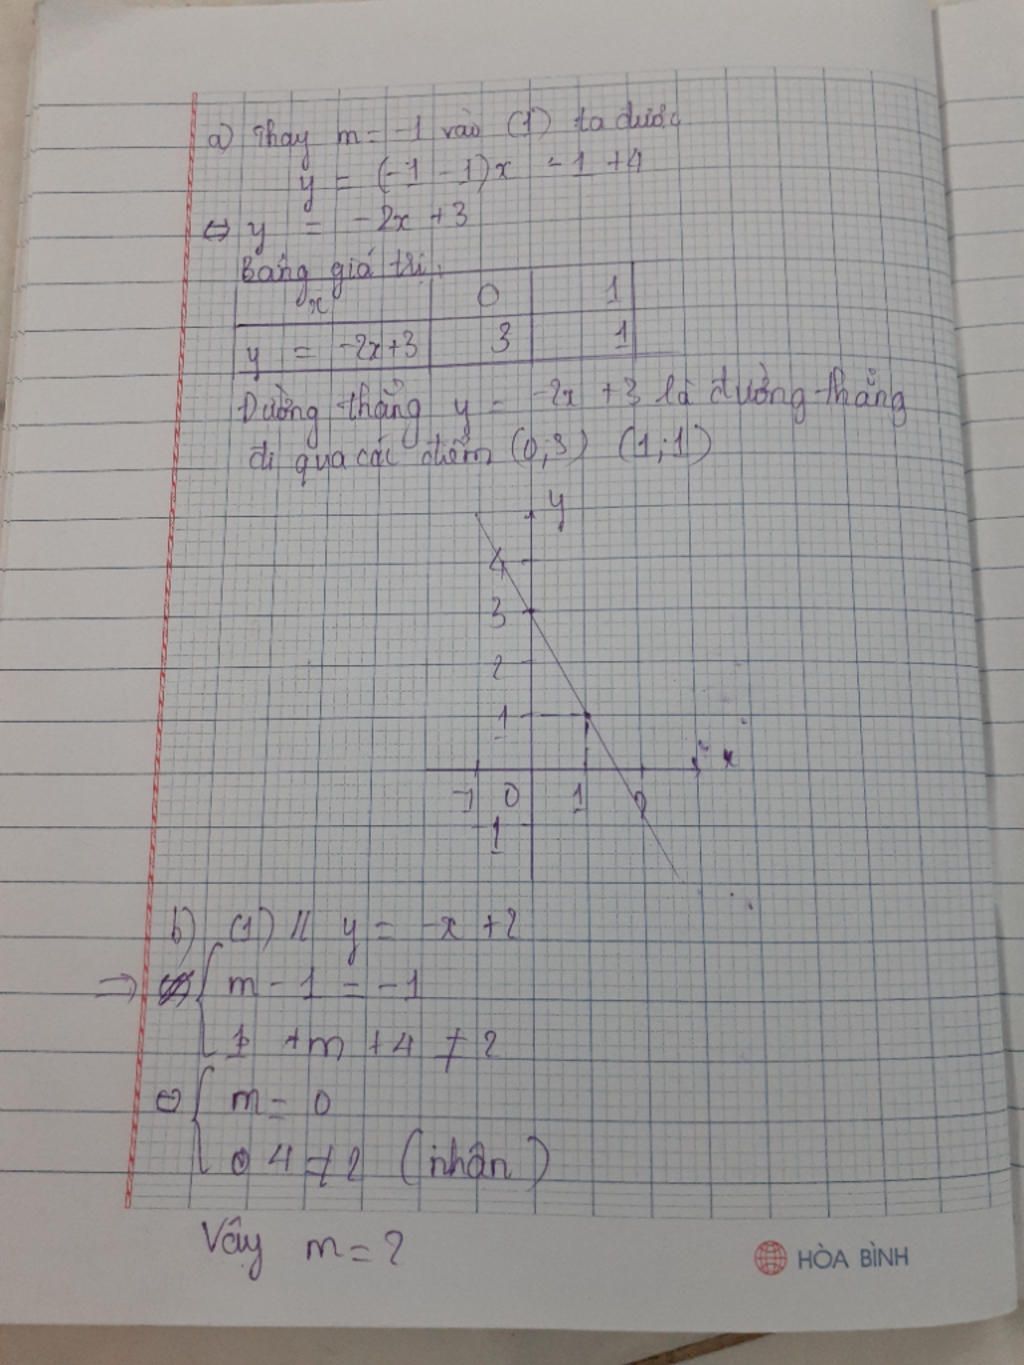 a) Thay m = -1 vào (1) ta được
y = (-1 - 1)x - 1 + 4
⇔ y = -2x + 3
Bảng giá trị:
x 0 1
y = -2x+3 3 1
Đường thẳng y = -2x + 3 là đường thẳng
đi qua các điểm (0;3) (1;1)
y
4
3
2
1
x
-1 0 1 2
-1
b) (1) // y = -x + 2
⇒ { m - 1 = -1
+m + 4 ≠ 2
⇔ { m = 0
4 ≠ 2 (nhận)
Vậy m = 2
HÒA BÌNH